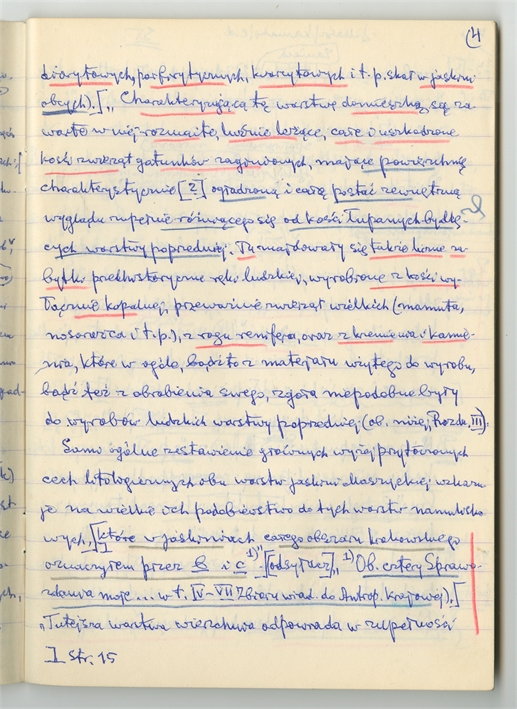 4
diorytowych, porfirytycznych, kwarcytowych i t.p. skał w jaskini
obcych).[„ Charakteryzującą tę warstwę domieszką, są za-
warte w niej rozmaite, luźnie leżące, całe i uszkodzone
kości zwierząt gatunków zaginionych, mające powierzchnię
charakterystycznie [2] ogładzoną i całą postać zewnętrzną
wyglądu zupełnie różniącego się od kości łupanych bydlę-
cych warstwy poprzedniej. Tu znajdowały się także liczne za-
bytki przedhistoryczne ręki ludzkiej, wyrobione z kości wy-
łącznie kopalnej, przeważnie zwierząt wielkich (mamuta,
nosorożca i t.p.), z rogu renifera, oraz z krzemienia i kamie-
nia, które w ogóle, bądź to z materjału wziętego do wyrobu,
bądź też z obrobienia swego, zgoła niepodobne były
do wyrobów ludzkich warstwy poprzedniej (ob. niżej, Rozdz. III).
Samo ogólne zestawienie głównych wyżej przytoczonych
cech litologicznych obu warstw jaskini Maszyckiej wskazu-
je na wielkie ich podobieństwo do tych warstw namulisko-
wych, [które w jaskiniach całego obszaru krakowskiego
oznaczyłem przez B i c 1)"] [odsyłacz], „1) Ob. cztery Sprawo-
zdania moje ... w t. IV-VII Zbioru wiad. do Antrop. krajowej), [
„Tutejsza warstwa wierzchnia odpowiada w zupełności
] str. 15